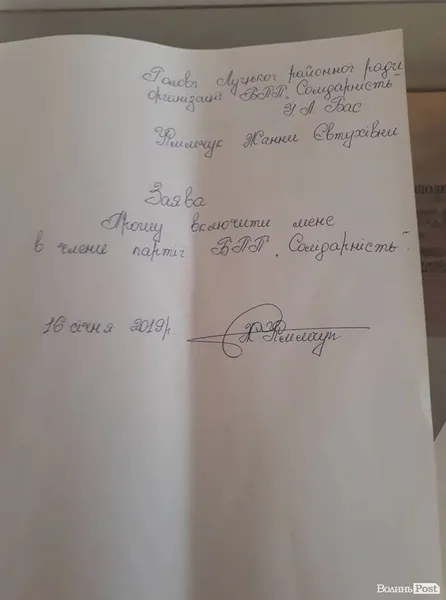 Голові Луцької районної ради
організації БПП „Солідарність"
Жанни Євтухівни
Заява
Прошу включити мене
в члени партії БПП „Солідарність"
16 січня 2019р.
ВолиньPost